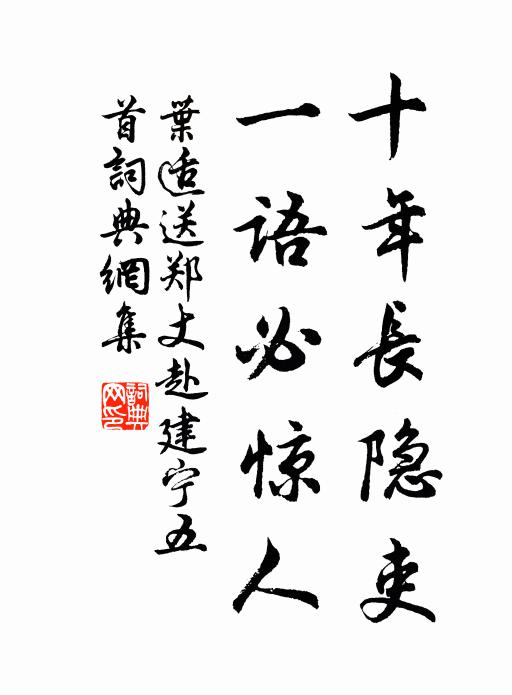 十年長隐吏
一语必惊人
葉适送郑丈赴建宁五
首詞典網集
詞典网印